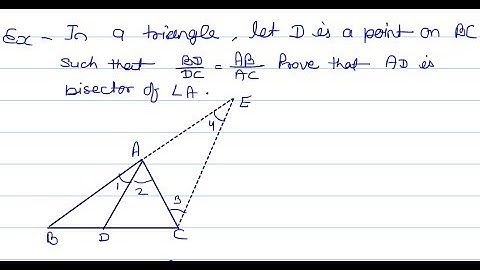 Ex - In a triangle, let D is a point on BC
such that BD/DC = AB/AC Prove that AD is
bisector of ∠A.
E
4
A
1 2 3
B D C